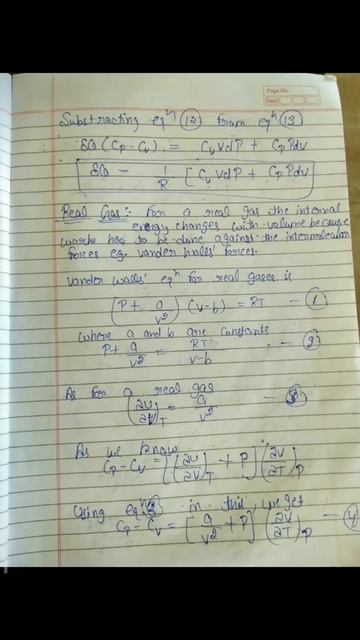 Page No.
Date
Substracting eqⁿ (12) from eqⁿ (13)
δQ (Cp - Cv) = CvVdP + CpPdv
δQ - 1/R [CvVdP + CpPdv]
Real Gas:- For a real gas the internal
energy changes with volume because
work has to be done against the intermolecular
forces eg. vander walls' forces.
vander walls' eqⁿ for real gases is
(P + a/v²) (v-b) = RT — (1)
where a and b are constants
P + a/v² = RT/v-b — (2)
As for a real gas
(∂U/∂V)T = a/v² — (3)
As we know
Cp - Cv = [(∂U/∂V)T + P] (∂V/∂T)p
Using eqⁿ (3) in this we get
Cp - Cv = [a/v² + P] (∂V/∂T)p — (4)